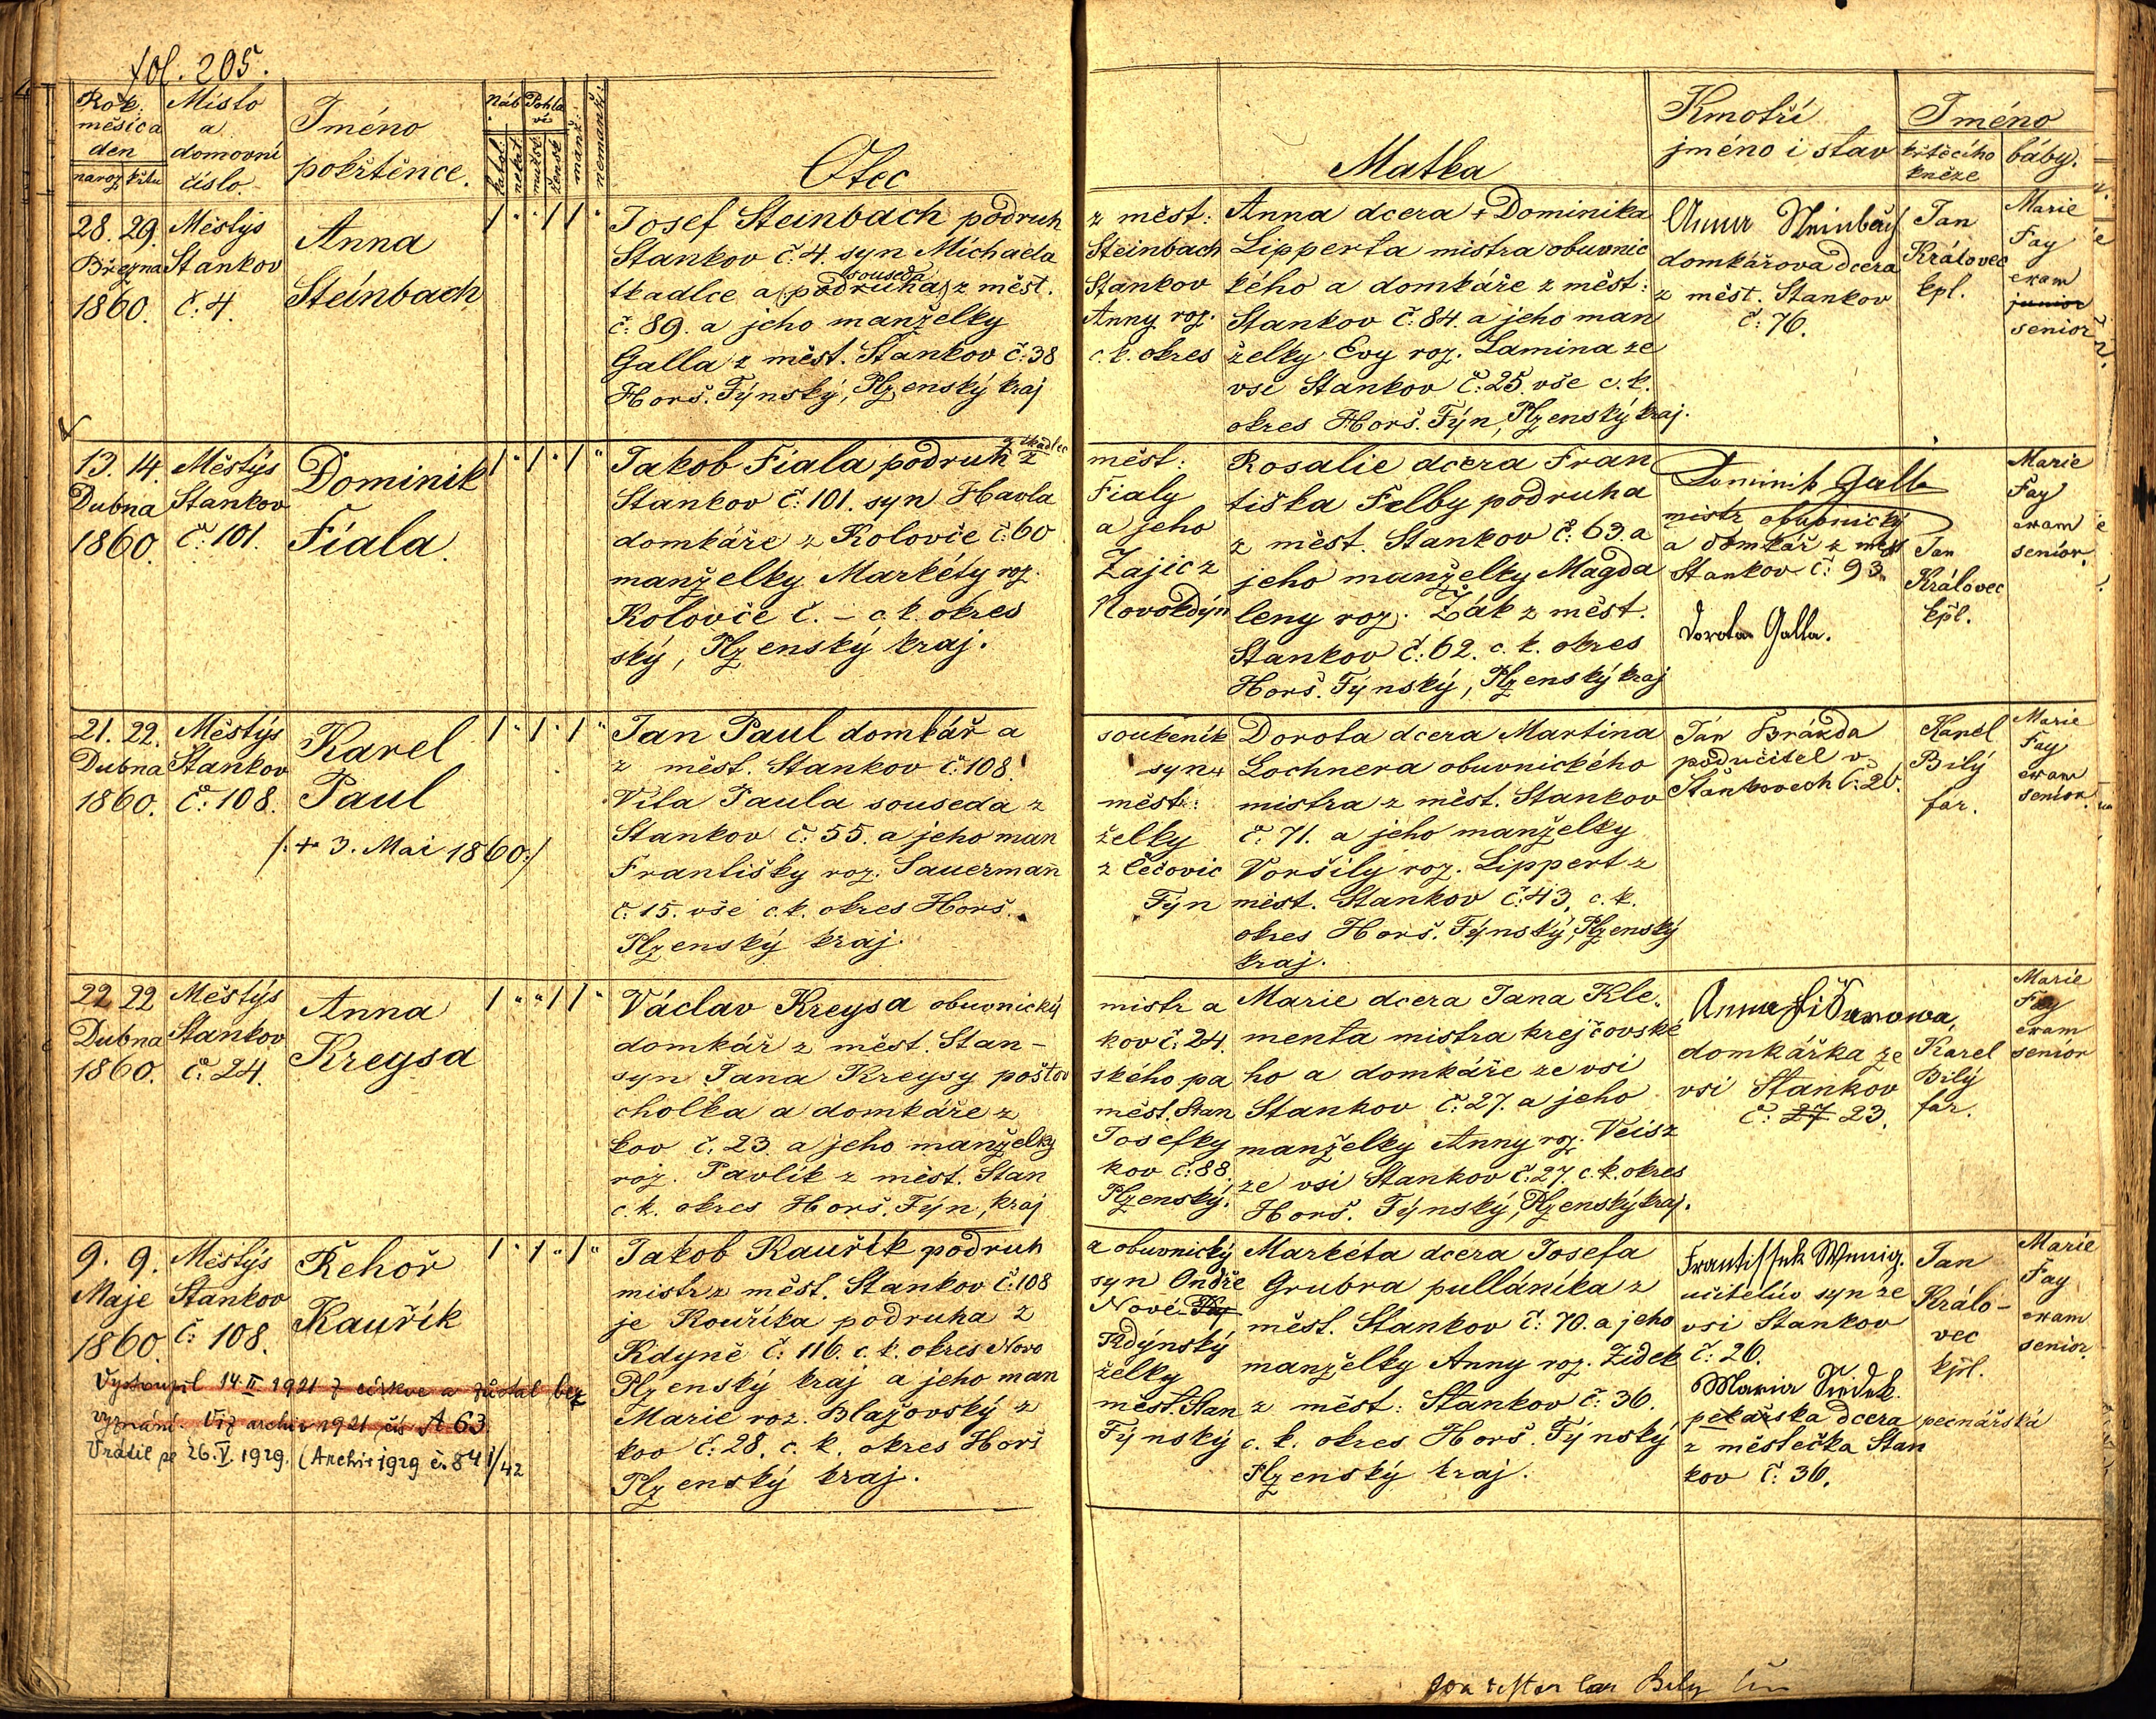 fol. 205.
Rok. měsíc a den
naroz. křtu
Místo a domovní číslo.
Jméno pokřtěnce.
Náb.
katol. nekat.
Pohlaví
mužsk. žensk.
manž.
nemanž.
Otec
Matka
Kmotří
jméno i stav
Jméno
křtícího kněze
báby.
28. 29.
Března
1860.
Městýs
Stankov
č. 4.
Anna
Steinbach
Josef Steinbach podruh z měst:
Stankov č. 4. syn Michaela Steinbach
tkadlce a (podruha) souseda z měst. Stankov
č: 89. a jeho manželky Anny roz.
Galla z měst. Stankov č: 38 c. k. okres
Horš. Týnský, Plzenský kraj
Anna dcera + Dominika
Lipperta mistra obuvnic
kého a domkáře z měst:
Stankov č: 84. a jeho man
želky Evy roz. Lamina ze
vsi Stankov č: 25. vše c. k.
okres Horš. Týn, Plzenský kraj.
Anna Steinbach
domkářova dcera
z měst. Stankov
č: 76.
Jan
Královec
kpl.
Marie
Fay
exam
junior
senior
13. 14.
Dubna
1860.
Městýs
Stankov
č: 101.
Dominik
Fiala
Jakob Fiala podruh a tkadlec z měst:
Stankov č: 101. syn Havla Fialy
domkáře z Kolovče č: 60 a jeho
manželky Markéty roz. Zajic z
Kolovče č. – c. k. okres Novokdýn
ský, Plzenský kraj.
Rosalie dcera Fran
tiška Felby podruha
z měst. Stankov č: 63. a
jeho manželky Magda
leny roz. Žák z měst.
Stankov č: 62. c. k. okres
Horš. Týnský, Plzenský kraj
Dominik Galla
mistr obuvnický
a domkář z měst
Stankov č: 93.
Dorota Galla.
Jan
Královec
kpl.
Marie
Fay
exam
senior.
21. 22.
Dubna
1860.
Městýs
Stankov
č: 108.
Karel
Paul
/: + 3. Mai 1860 :/
Jan Paul domkář a soukeník
z měst. Stankov č: 108. syn +
Víta Paula souseda z měst:
Stankov č: 55. a jeho man želky
Františky roz. Sauermann z Čečovic
č: 15. vše c. k. okres Horš. Týn
Plzenský kraj.
Dorota dcera Martina
Lochnera obuvnického
mistra z měst. Stankov
č: 71. a jeho manželky
Voršily roz. Lippert z
měst. Stankov č: 43, c. k.
okres Horš. Týnský, Plzenský
kraj.
Ján Brázda
podučitel v
Štankovech č: 20.
Karel
Bílý
far.
Marie
Fay
exam
senior.
22 22
Dubna
1860.
Městýs
Stankov
č: 24.
Anna
Kreysa
Václav Kreysa obuvnický mistr a
domkář z měst. Stan– kov č: 24.
syn Jana Kreysy poštov ského pa
cholka a domkáře z měst. Stan
kov č: 23. a jeho manželky Josefky
roz. Pavlík z měst. Stan kov č: 88.
c. k. okres Horš. Týn, kraj Plzenský.
Marie dcera Jana Kle
menta mistra krejčovské
ho a domkáře ze vsi
Stankov č: 27. a jeho
manželky Anny roz. Veis z
ze vsi Stankov č: 27. c. k. okres
Horš. Týnský, Plzenský kraj.
Anna
domkářka ze
vsi Stankov
č: 27 23.
Karel
Bílý
far.
Marie
Fay
exam
senior
9. 9.
Maje
1860.
Městýs
Stankov
č: 108.
Řehoř
Kauřík
Vystoupil 14. II. 1921 z církve a zůstal bez
vyznání. Viz archiv 1921 čís A 63
Vrátil se 26. V. 1929. (Archiv 1929 č. 841/42
Jakob Kauřík podruh a obuvnický
mistr z měst. Stankov č: 108 syn Ondře
je Kouříka podruha z Nové
Kdyně č: 116. c. k. okres Novo Kdýnský
Plzenský kraj a jeho man želky
Marie roz. Blažovský z měst. Stan
kov č: 28. c. k. okres Horš Týnský
Plzenský kraj.
Markéta dcera Josefa
Grubra pulláníka z
měst. Stankov č: 70. a jeho
manželky Anny roz. Zídek
z měst: Stankov č: 36.
c. k. okres Horš. Týnský
Plzenský kraj.
Frantissek Wenig.
učitelův syn ze
vsi Stankov
č: 26.
Maria Siedek.
pekařska dcera pernářská
z městečka Stan
kov č: 36.
Jan
Králo–
vec
kpl.
Marie
Fay
exam
senior.